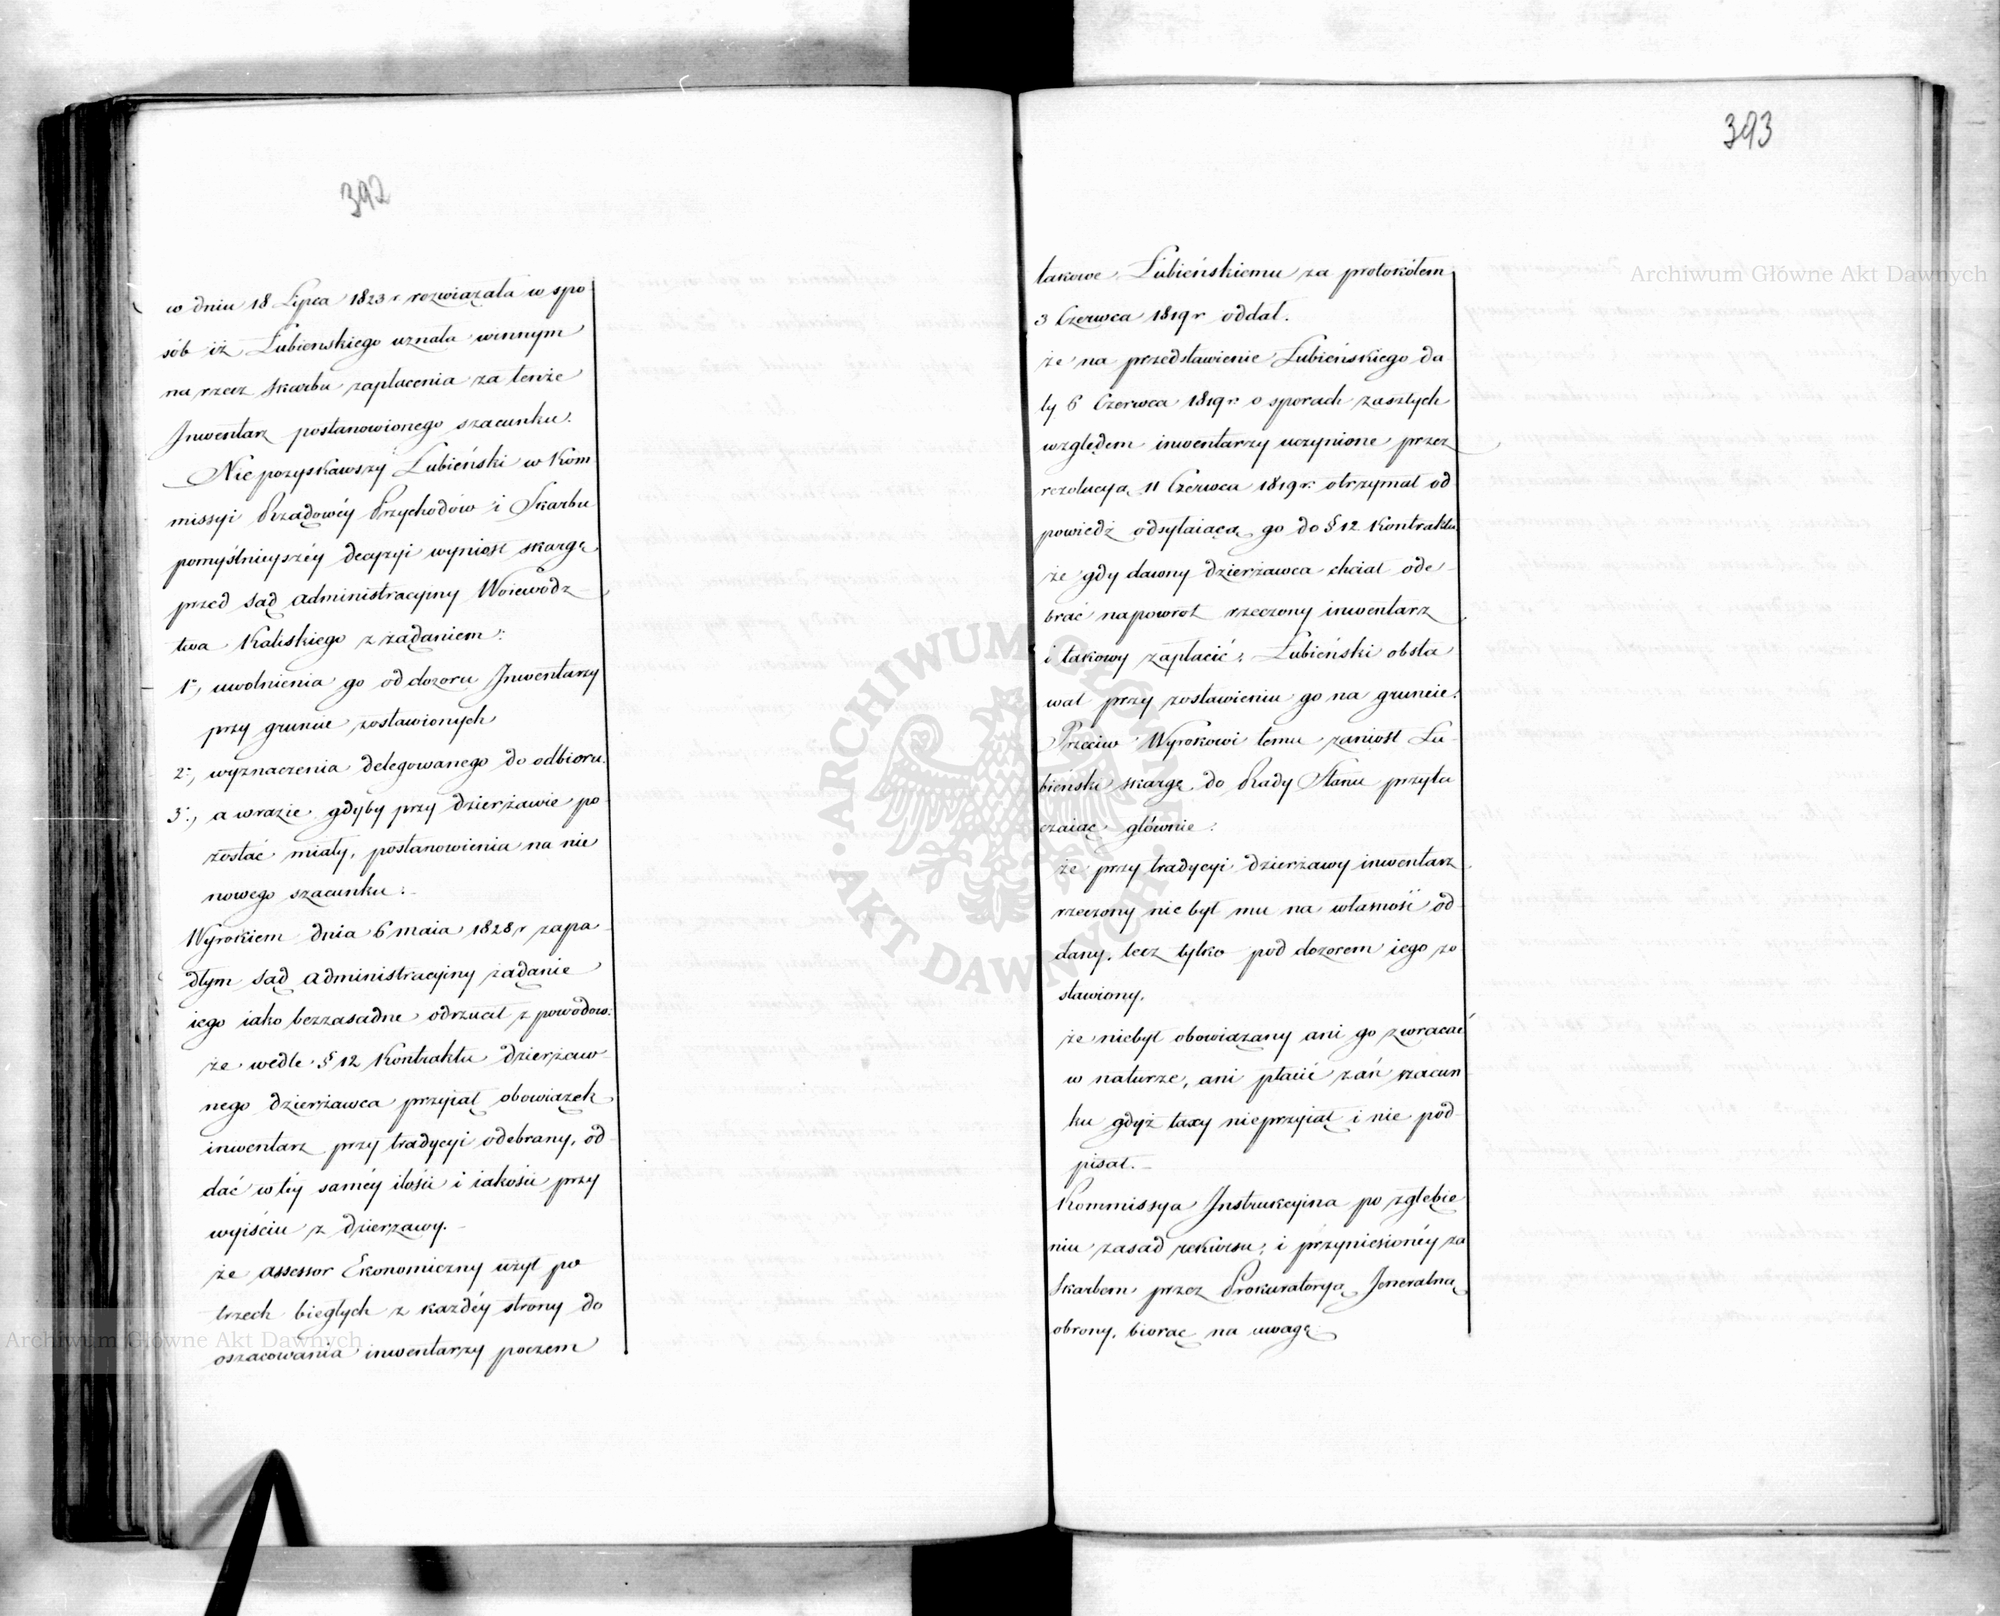 392
w dniu 18 Lipca 1823 r rozwiązała w spo
sób iż Lubienskiego uznała winnym
na rzecz skarbu zapłacenia za tenże
Inwentarz postanowionego szacunku.
Nie pozyskawszy Lubieński w Kom
missyi Rządowéy Przychodów i Skarbu
pomyślnieyszéy decyzyi wyniosł skargę
przed sąd administracyiny Woiewódz
twa Kaliskiego z żądaniem:
1º, uwolnienia go od dozoru Inwentarzy
przy gruncie zostawionych
2º, wyznaczenia delegowanego do odbioru.
3º, a wrazie gdyby przy dzierżawie po
zostać miały, postanowienia na nie
nowego szacunku.
Wyrokiem dnia 6 maia 1828 r zapa
dłym sąd administracyiny żądanie
iego iako bezzasadne odrzucał z powodow:
że wedle § 12 Kontraktu dzierżaw
nego dzierżawca przyiął obowiązek
inwentarz przy tradycyi odebrany, od
dać w téy saméy ilości i iakości przy
wyiściu z dzierzawy.
że assessor Ekonomiczny użył po
trzech biegłych z każdéy strony do
oszacowania inwentarzy poczem
393
takowe Lubieńskiemu za protokółem
3 Czerwca 1819 r oddał.
że na przedstawienie Lubieńskiego da
ty 6 Czerwca 1819 r. o sporach zaszłych
względem inwentarzy uczynione przez
rezolucyą 11 Czerwca 1819 r. otrzymał od
powiedź odsyłaiącą go do § 12 Kontraktu
że gdy dawny dzierżawca chciał ode
brać napowrot rzeczony inwentarz
i takowy zapłacić, Lubieński obsta
wał przy zostawieniu go na gruncie.
Przeciw Wyrokowi temu zaniósł Lu-
bienski skargę do Rady Stanu przyta
czaiąc głównie:
że przy tradycyi dzierżawy inwentarz
rzeczony nie był mu na własność od
dany, lecz tylko pod dozorem iego zo
stawiony,
że niebył obowiązany ani go zwracać
w naturze, ani płacić zań szacun
ku gdyż taxy nieprzyiął i nie pod
pisał.
Kommissya Instrukcyina po zgłębie
niu zasad rekursu, i przyniesionéy za
Skarbem przez Prokuratoryą Jeneralną
obrony, biorąc na uwagę
Archiwum Główne Akt Dawnych
Archiwum Główne Akt Dawnych
ARCHIWUM GŁÓWNE AKT DAWNYCH